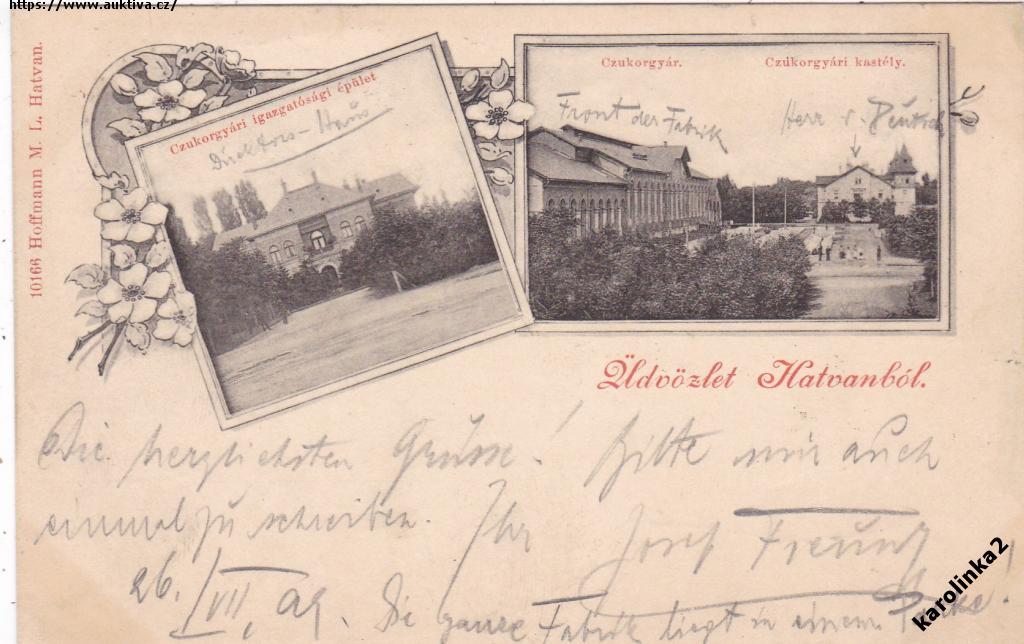 https://www.auktiva.cz/
10166 Hoffmann M. L. Hatvan.
Czukorgyári igazgatósági épület
Direktors-Haus
Czukorgyár.
Czukorgyári kastély.
Front der Fabrik
Herr v. Deutsch
Üdvözlet Hatvanból.
Die herzlichsten Grüsse! Bitte mir auch
einmal zu schreiben. Ihr Josef
26./VII
Die ganze Fabrik liegt in einem Parke!
karolinka2